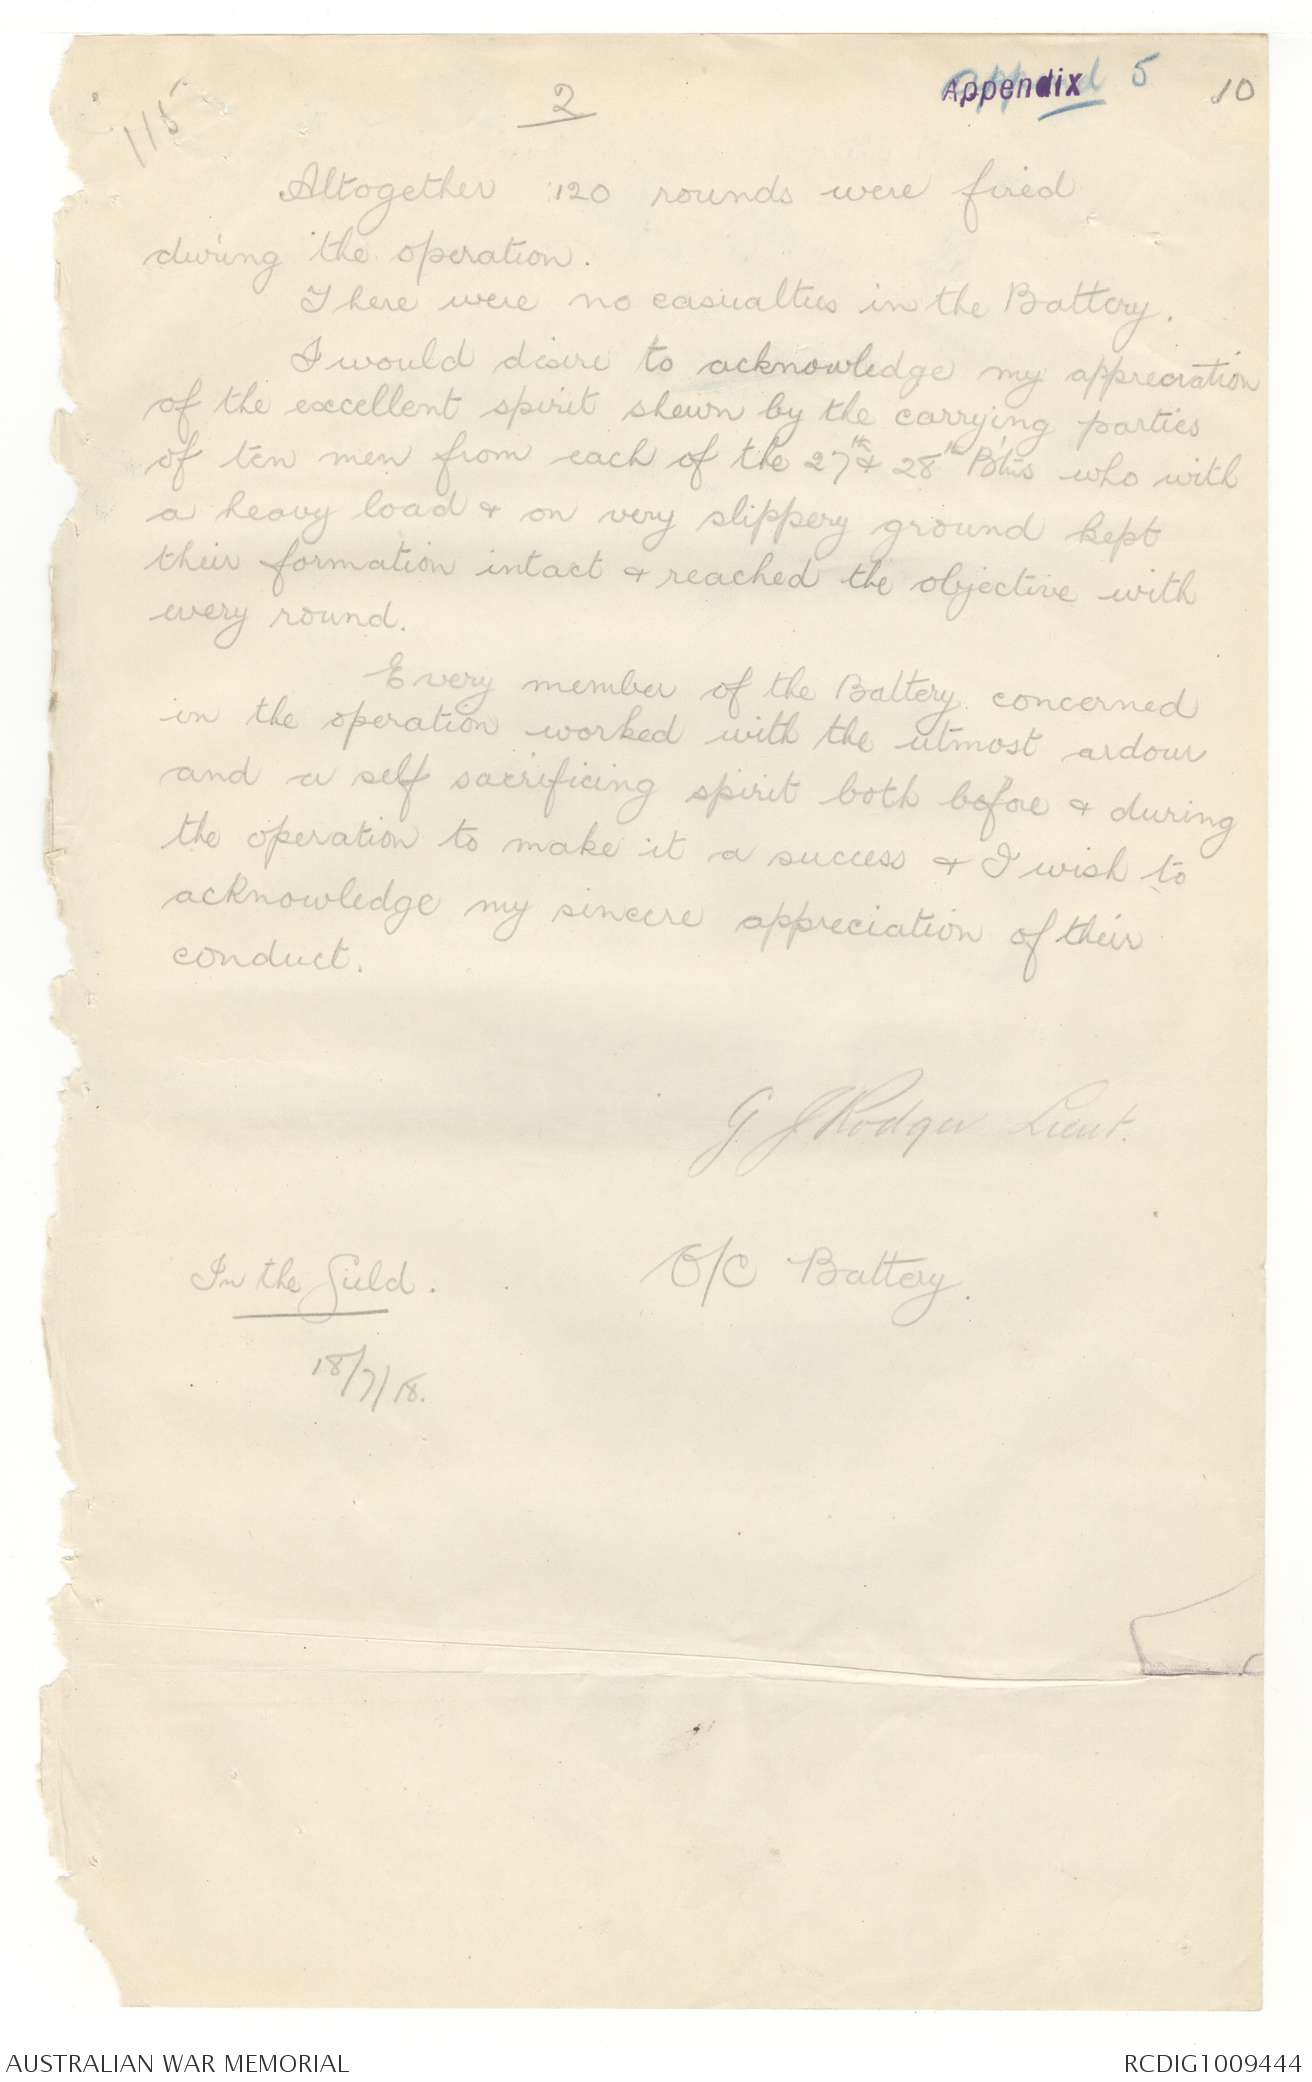 115
2
Appendix 5
10
Altogether 120 rounds were fired
during the operation.
There were no casualties in the Battery.
I would desire to acknowledge my appreciation
of the excellent spirit shewn by the carrying parties
of ten men from each of the 27th & 28th Btns who with
a heavy load & on very slippery ground kept
their formation intact & reached the objective with
every round.
Every member of the Battery concerned
in the operation worked with the utmost ardour
and a self sacrificing spirit both before & during
the operation to make it a success & I wish to
acknowledge my sincere appreciation of their
conduct.
G. J Rodger Lieut.
O/C Battery.
In the Field.
18/7/18.
AUSTRALIAN WAR MEMORIAL
RCDIG1009444